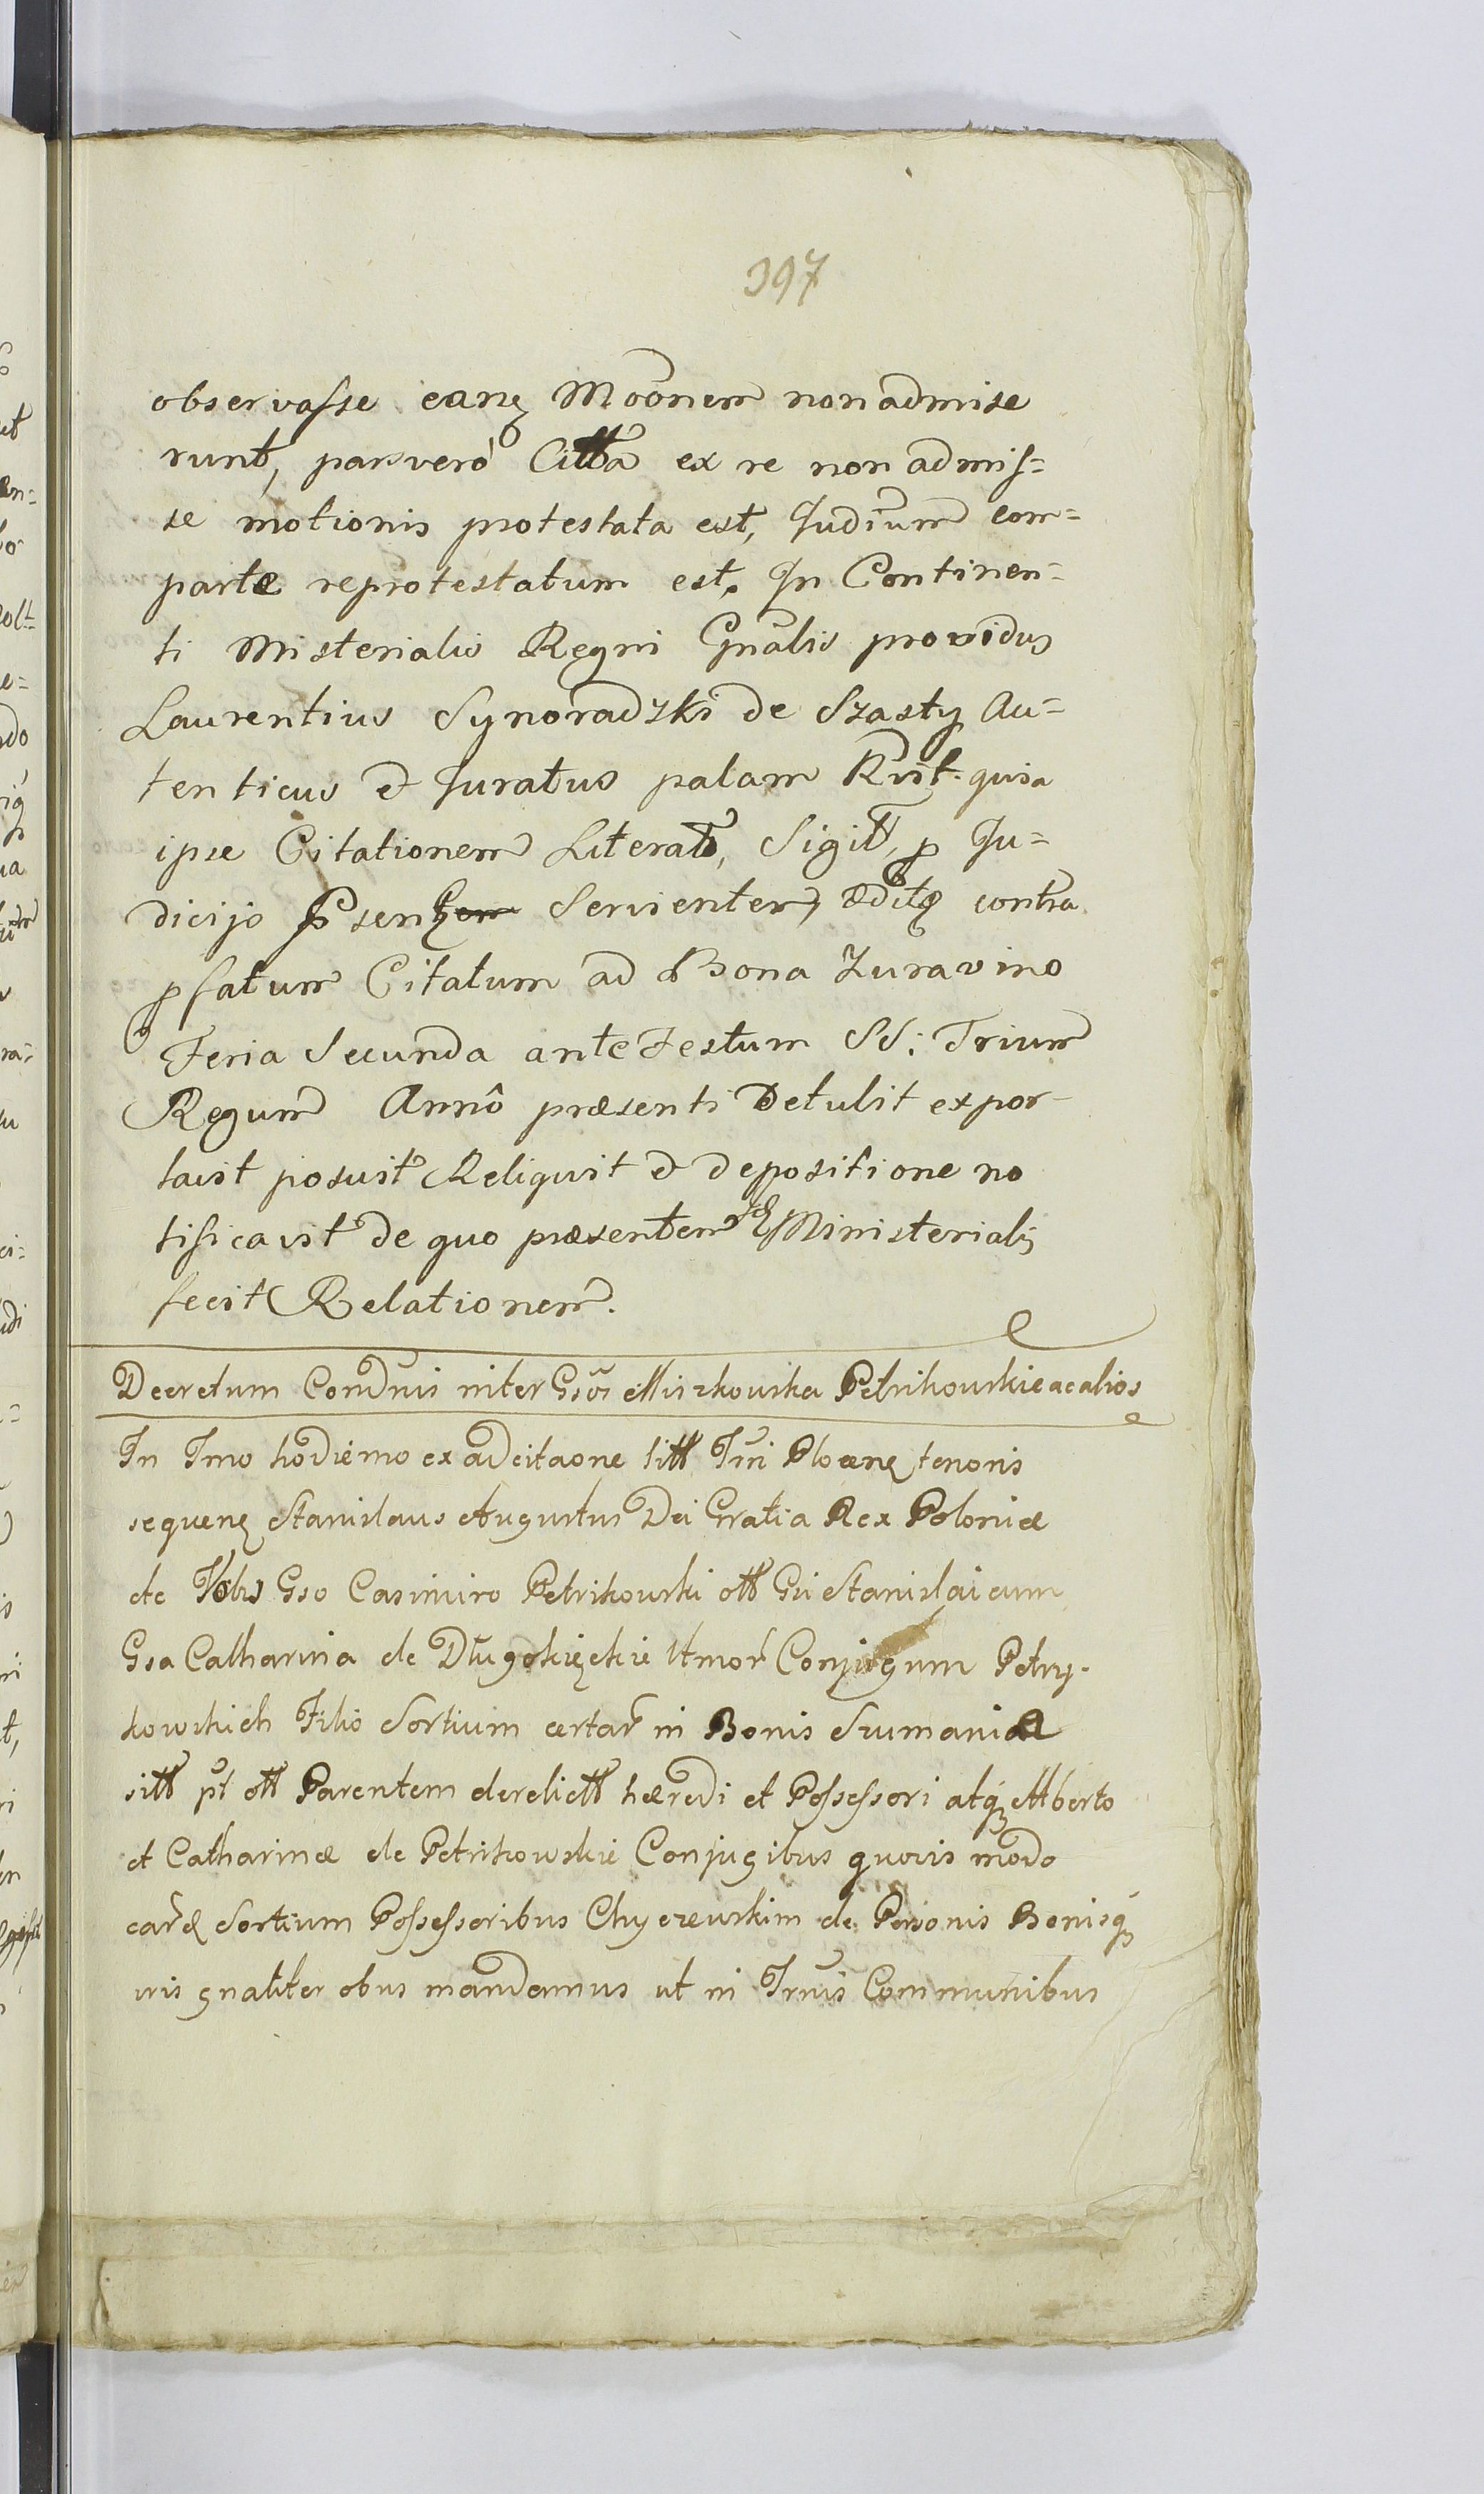 397
observasse eanq Moonem non admise
runt, pars vero Citta ex re non admis=
se motionis protestata est, Judium com=
parte reprotestatum est. In Continen=
ti Misterialis Regni Gnalis providus
Laurentius Synoradzki de Szasty Au=
tenticus et Juratus palam Rvit quia
ipse Citationem Literat, Sigitt, p Ju=
dicijo Servientem, Editq contra
pfatum Citatum ad Bona Zuravino
Feria Secunda ante Festum SS: Trium
Regum Annô præsenti Detulit expor-
tavit posuit Reliquit et depositione no
tificavit de quo præsentem Ministerialis
fecit Relationem.
Decretum Condnis inter Gsos Miszkowska Petrikowskie ac alios
In Tmo hodierno ex adcitaone litt Trri Plocenq tenoris
sequenq Stanislaus Augustus Dei Gratia Rex Poloniæ
etc Vobis Gso Casimiro Petrikowski olt Gsi Stanislai cum
Gsa Catharina de Długołęckie Itmor Conjugum Petry-
kowskich Filio Sortium certar in Bonis Szumaniæ
sitt pt olt Parentem derelictt hæredi et Possessori atq Alberto
et Catharinæ de Petrikowskie Conjugibus quovis modo
earq Sortium Possessoribus Chyczewskim de Personis Bonisq
vris gnaliter obus mandamus ut in Trmis Communibus